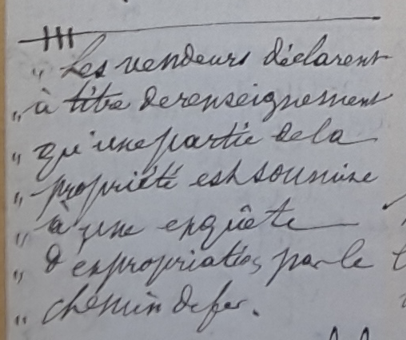 „ Les vendeurs déclarent
„ à titre de renseignement
„ qu'une partie de la
„ propriété est soumise
„ à une enquête
„ d'expropriation, par le
„ chemin de fer.